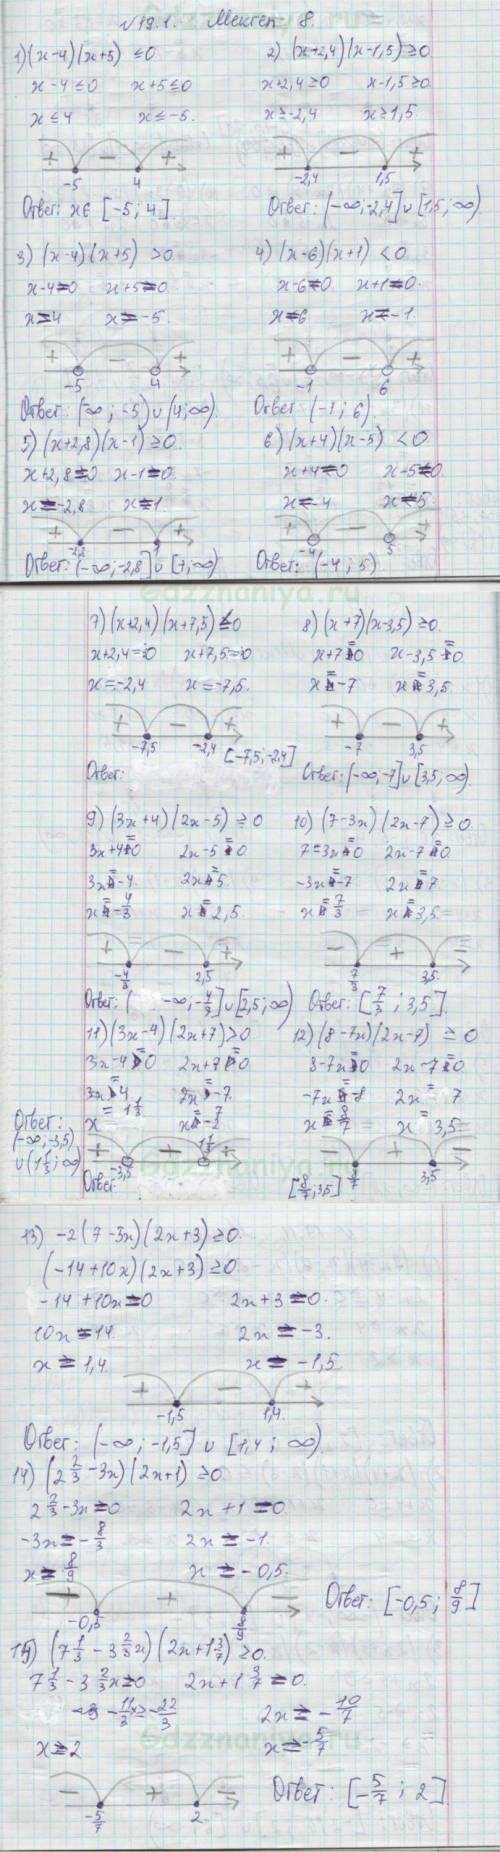 №19.1. Мектеп 8.
1) (x-4)(x+5) ≤0 2) (x+2,4)(x-1,5)≥0
x-4≤0 x+5≤0 x+2,4≥0 x-1,5≥0
x≤4 x≤-5. x≥-2,4 x≥1,5
+ - + + - +
-5 4 -2,4 1,5
Ответ: x∈ [-5; 4]. Ответ: (-∞;-2,4]∪[1,5;∞)
3) (x-4)(x+5) >0 4) (x-6)(x+1) <0
x-4=0 x+5=0 x-6=0 x+1=0.
x=4 x=-5. x=6 x=-1.
+ - + + - +
-5 4 -1 6
Ответ: (-∞; -5)∪(4;∞) Ответ: (-1; 6).
5) (x+2,8)(x-1)≥0. 6) (x+4)(x-5) <0
x+2,8=0 x-1=0. x+4=0 x-5=0
x=-2,8 x=1 x=-4 x=5.
+ - + + - +
-2,8 1 -4 5
Ответ: (-∞;-2,8]∪[1;∞) Ответ: (-4; 5)
dzznaniya.ru
7) (x+2,4)(x+7,5)≤0 8) (x+7)(x-3,5)≥0.
x+2,4=0 x+7,5=0 x+7=0 x-3,5=0
x=-2,4 x=-7,5. x=-7 x=3,5.
+ - + + - +
-7,5 -2,4 -7 3,5
[-7,5;-2,4]
Ответ: Ответ: (-∞;-7]∪[3,5;∞).
9) (3x+4)(2x-5)≥0 10) (7-3x)(2x-7)≥0.
3x+4=0 2x-5=0 7-3x=0 2x-7=0.
3x=-4. 2x=5. -3x=-7 2x=7.
x=-4/3 x=2,5. x=7/3 x=3,5.
+ - + - + -
-4/3 2,5 7/3 3,5
Ответ: (-∞;-4/3]∪[2,5;∞) Ответ: [7/3; 3,5].
11) (3x-4)(2x+7)>0 12) (8-7x)(2x-7) ≥0
3x-4=0 2x+7=0 8-7x=0 2x-7=0.
3x=4 2x=-7. -7x=-8 2x=7
x=1 1/3 x=-7/2 x=8/7 x=3,5
Ответ: (-∞;-3,5)∪(1 1/3;∞)
+ - + - + -
-3,5 1 1/3 8/7 3,5
Ответ: [8/7;3,5]
13) -2(7-5x)(2x+3)≥0.
(-14+10x)(2x+3)≥0.
-14+10x=0 2x+3=0.
10x=14. 2x=-3.
x=1,4. x=-1,5.
+ - +
-1,5 1,4.
Ответ: (-∞; -1,5] ∪ [1,4; ∞)
14) (2 2/3-3x)(2x+1)≥0.
2 2/3-3x=0 2x+1=0.
-3x=-8/3 2x=-1.
x=8/9 x=-0,5.
- + -
-0,5 8/9
Ответ: [-0,5; 8/9]
15) (7 1/3-3 2/3x)(2x+1 3/7)≥0.
7 1/3-3 2/3x=0 2x+1 3/7=0.
-11/3x=-22/3 2x=-10/7
x=2 x=-5/7
- + -
-5/7 2.
Ответ: [-5/7; 2].